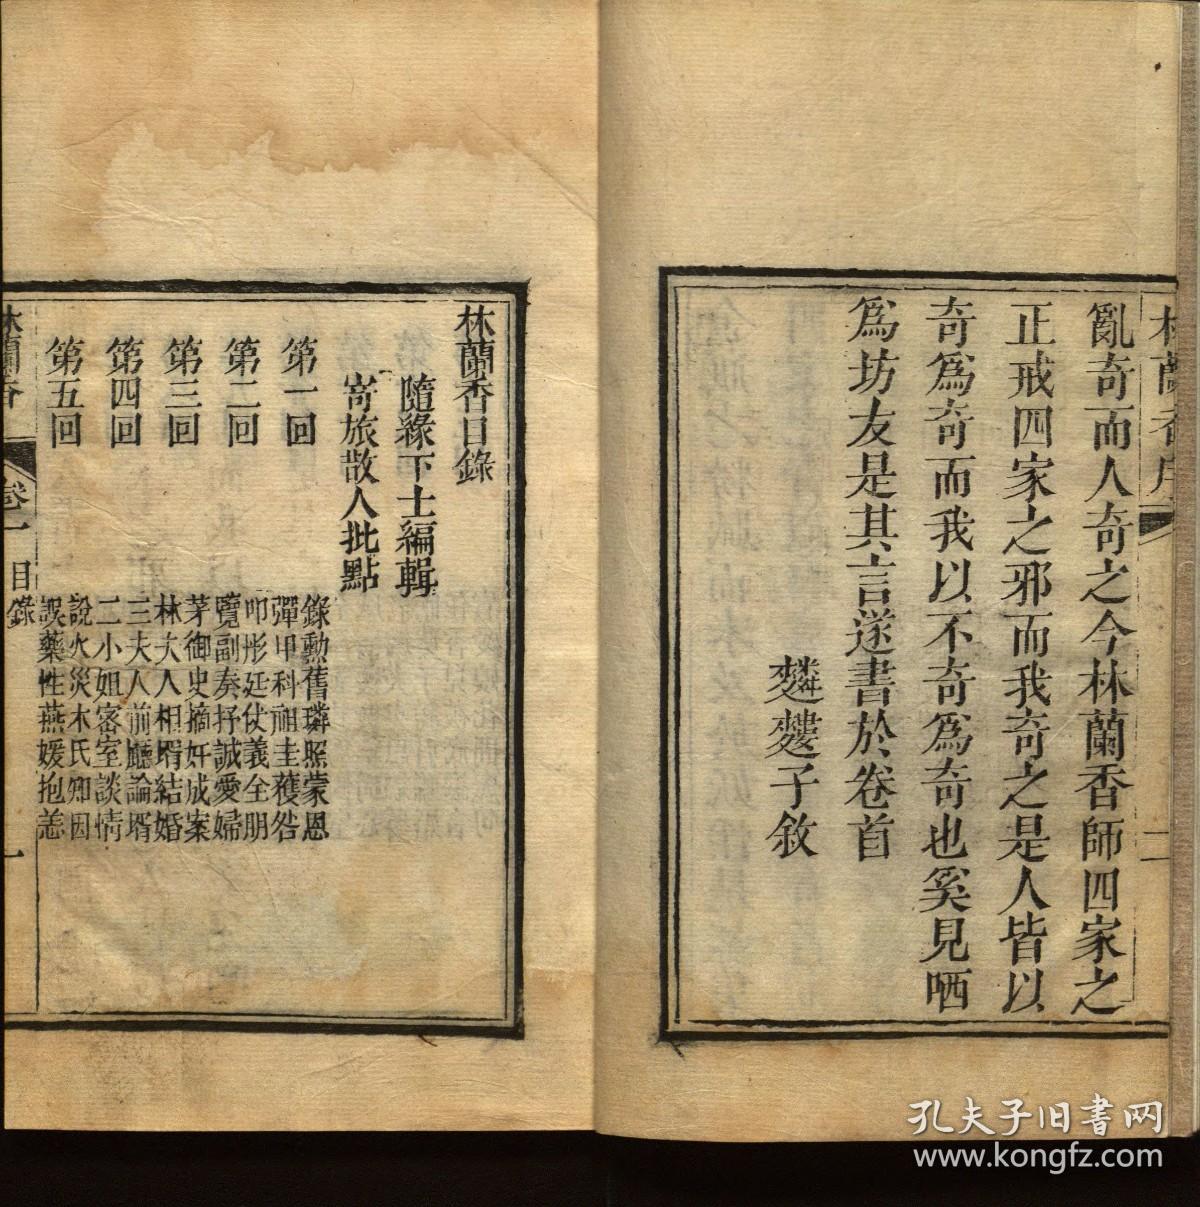 林蘭香序
二
亂奇而人奇之今林蘭香師四家之
正戒四家之邪而我奇之是人皆以
奇爲奇而我以不奇爲奇也奚見哂
爲坊友是其言遂書於卷首
子敘
林蘭香目錄
隨緣下士編輯
寄旅散人批點
第一回
錄勲舊璘照蒙恩
彈甲科祖圭獲咎
第二回
叩彤廷仗義全朋
覽副奏抒誠愛婦
第三回
茅御史摘奸成案
林夫人相壻結婚
第四回
三夫人前廳論壻
二小姐密室談情
第五回
說火災木氏卿因
誤藥性燕媛抱恙
林蘭香
卷一
目錄
一
孔夫子旧書网
www.kongfz.com